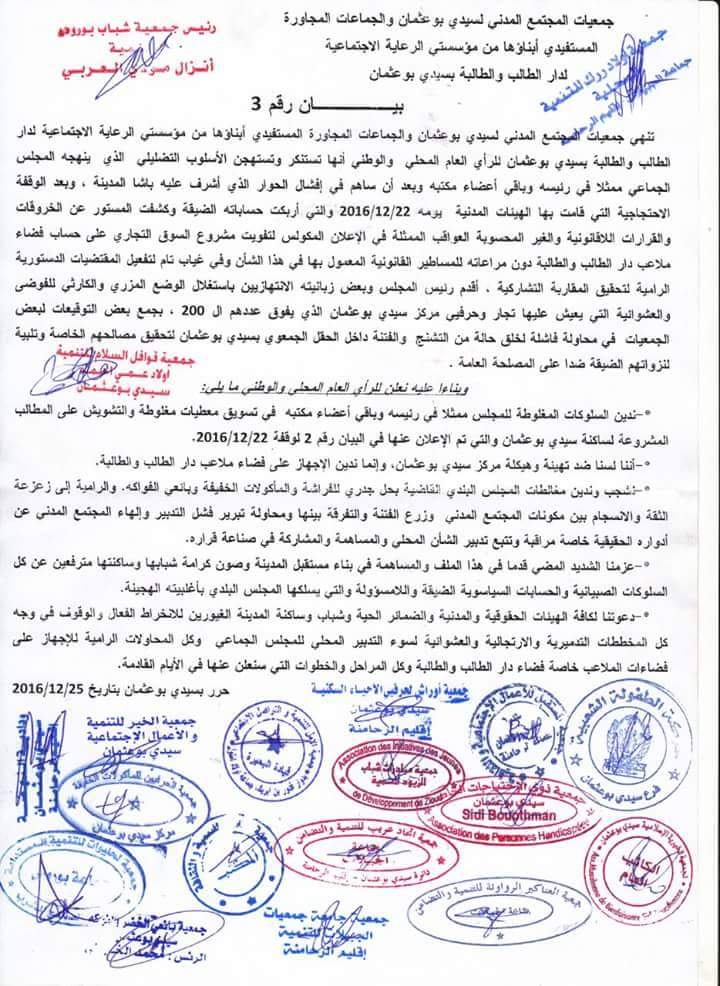 جمعيات المجتمع المدني لسيدي بوعثمان والجماعات المجاورة
المستفيدي أبناؤها من مؤسستي الرعاية الاجتماعية
لدار الطالب والطالبة بسيدي بوعثمان
رئيس جمعية شباب بوروس
أنزال العربي
جمعية اولاد زرك للتنمية
بيـــــــــان رقم 3
تنهي جمعيات المجتمع المدني لسيدي بوعثمان والجماعات المجاورة المستفيدي أبناؤها من مؤسستي الرعاية الاجتماعية لدار
الطالب والطالبة بسيدي بوعثمان للرأي العام المحلي والوطني أنها تستنكر وتستهجن الأسلوب التضليلي الذي ينهجه المجلس
الجماعي ممثلا في رئيسه وباقي أعضاء مكتبه وبعد أن ساهم في إفشال الحوار الذي أشرف عليه باشا المدينة ، وبعد الوقفة
الاحتجاجية التي قامت بها الهيئات المدنية يومه 2016/12/22 والتي أربكت حساباته الضيقة وكشفت المستور عن الخروقات
والقرارات اللاقانونية والغير المحسوبة العواقب الممثلة في الإعلان المكولس لتفويت مشروع السوق التجاري على حساب فضاء
ملاعب دار الطالب والطالبة دون مراعاته للمساطير القانونية المعمول بها في هذا الشأن وفي غياب تام لتفعيل المقتضيات الدستورية
الرامية لتحقيق المقاربة التشاركية ، أقدم رئيس المجلس وبعض زبانيته الانتهازيين باستغلال الوضع المزري والكارثي للفوضى
والعشوائية التي يعيش عليها تجار وحرفيي مركز سيدي بوعثمان الذي يفوق عددهم ال 200 ، بجمع بعض التوقيعات لبعض
الجمعيات في محاولة فاشلة لخلق حالة من التشنج والفتنة داخل الحقل الجمعوي بسيدي بوعثمان لتحقيق مصالحهم الخاصة وتلبية
لنزواتهم الضيقة ضدا على المصلحة العامة .
جمعية قوافل السلام للتنمية
سيدي بوعثمان
وبناءا عليه نعلن للرأي العام المحلي والوطني ما يلي:
*- ندين السلوكات المغلوطة للمجلس ممثلا في رئيسه وباقي أعضاء مكتبه في تسويق معطيات مغلوطة والتشويش على المطالب
المشروعة لساكنة سيدي بوعثمان والتي تم الإعلان عنها في البيان رقم 2 لوقفة 2016/12/22.
*- أننا لسنا ضد تهيئة وهيكلة مركز سيدي بوعثمان، وإنما ندين الإجهاز على فضاء ملاعب دار الطالب والطالبة.
*- نشجب وندين مغالطات المجلس البلدي القاضية بحل جدري للفراشة والمأكولات الخفيفة وبائعي الفواكه. والرامية إلى زعزعة
الثقة والانسجام بين مكونات المجتمع المدني وزرع الفتنة والتفرقة بينها ومحاولة تبرير فشل التدبير وإلهاء المجتمع المدني عن
أدواره الحقيقية خاصة مراقبة وتتبع تدبير الشأن المحلي والمساهمة والمشاركة في صناعة قراره.
*- عزمنا الشديد المضي قدما في هذا الملف والمساهمة في بناء مستقبل المدينة وصون كرامة شبابها وساكنتها مترفعين عن كل
السلوكات الصبيانية والحسابات السياسوية الضيقة واللامسؤولة والتي يسلكها المجلس البلدي بأغلبيته الهجينة.
*- دعوتنا لكافة الهيئات الحقوقية والمدنية والضمائر الحية وشباب وساكنة المدينة الغيورين للانخراط الفعال والوقوف في وجه
كل المخططات التدميرية والارتجالية والعشوائية لسوء التدبير المحلي للمجلس الجماعي وكل المحاولات الرامية للإجهاز على
فضاءات الملاعب خاصة فضاء دار الطالب والطالبة وكل المراحل والخطوات التي سنعلن عنها في الأيام القادمة.
حرر بسيدي بوعثمان بتاريخ 2016/12/25
جمعية أوراش لحرفيي الاحياء السكنية
سيدي بوعثمان
إقليم الرحامنة
جمعية الخير للتنمية
و الأعمال الإجتماعية
سيدي بوعثمان
حركة الطفولة الشعبية
فرع سيدي بوعثمان
Association des Initiatives des Jeunes
de Développement de Zlouid
جمعية مبادرات شباب
جمعية ذوي الاحتياجات
سيدي بوعثمان
Sidi Bouothman
Association des Personnes Handicapées
مركز سيدي بوعثمان
جمعية اتحاد عرب للتنمية والتضامن
دائرة سيدي بوعثمان - إقليم الرحامنة
الجمعية الخيرية الإسلامية سيدي بوعثمان
الكاتب
العام
جمعية العناكير الرواونة للتنمية والتضامن
جمعية جامعة جمعيات
الجبيلات للتنمية
إقليم الرحامنة
جمعية بائعي الخضر
سيدي بوعثمان
الرئيس : محمد